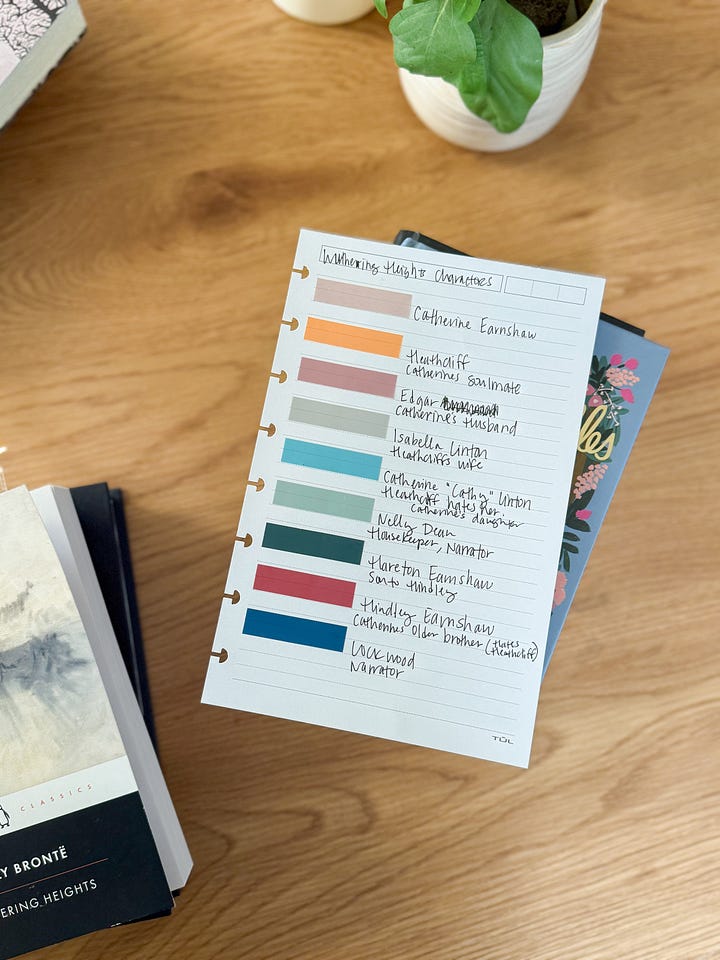 Wuthering Heights Characters
Catherine Earnshaw
Heathcliff
Catherines soulmate
Edgar
Catherine's Husband
Isabella Linton
Heathcliffs wife
Catherine "Cathy" Linton
Heathcliff hates her
Catherine's daughter
Nelly Dean
Housekeeper, Narrator
Hareton Earnshaw
Son to Hindley
Hindley Earnshaw
Catherines older brother (Hates
Heathcliff)
Lockwood
Narrator
TUL
les
CLASSICS
Y BRONTË
ERING HEIGHTS